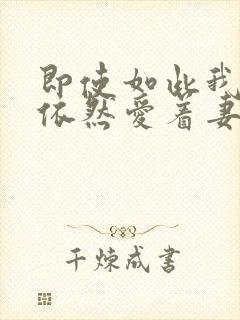 即使如此我
依然爱着妻
千炼成书